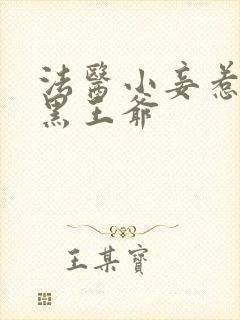 法醫小妾惹
黑王爺
王某寶